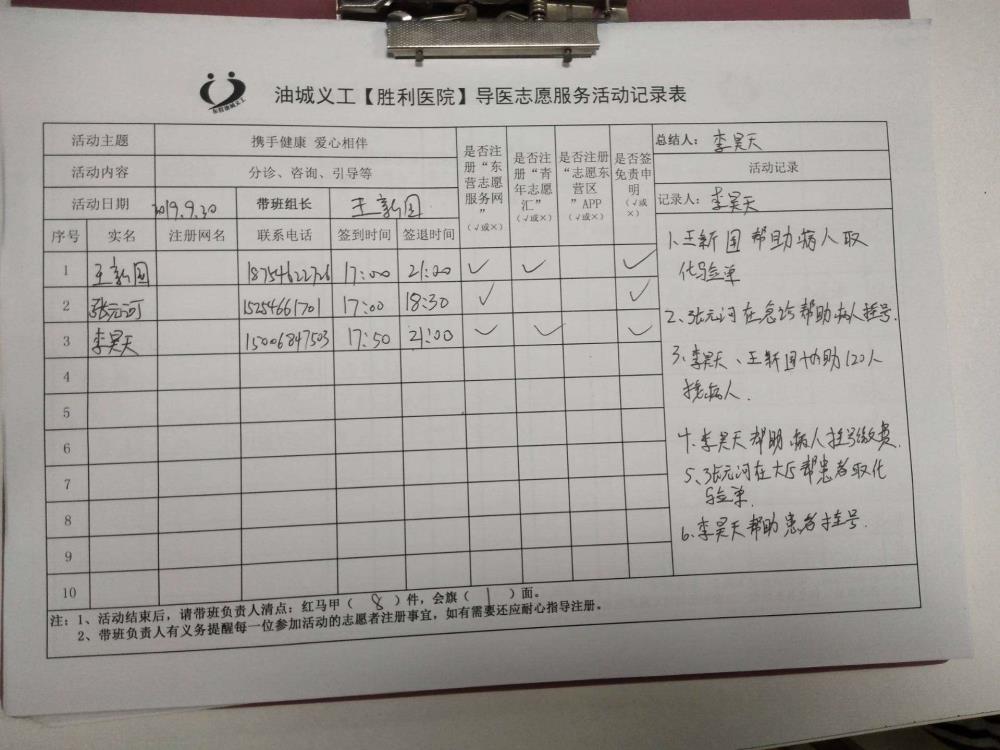 东营油城义工
油城义工【胜利医院】导医志愿服务活动记录表
活动主题 携手健康 爱心相伴
活动内容 分诊、咨询、引导等
活动日期 2019.9.30 带班组长 王新国
序号 实名 注册网名 联系电话 签到时间 签退时间
是否注册“东营志愿服务网”（√或×）
是否注册“青年志愿汇”（√或×）
是否注册“志愿东营区”APP（√或×）
是否签免责申明（√或×）
1 王新国 18754622726 17:00 21:00 √ √ √
2 张元河 15254661701 17:00 18:30 √ √
3 李昊天 15006847503 17:50 21:00 √ √ √
4
5
6
7
8
9
10
总结人：李昊天
活动记录
记录人：李昊天
1、王新国帮助病人取
化验单
2、张元河在急诊帮助病人挂号.
3、李昊天、王新国协助120人
接病人.
4、李昊天帮助病人挂号缴费.
5、张元河在大厅帮患者取化
验单.
6、李昊天帮助患者挂号.
注：1、活动结束后，请带班负责人清点：红马甲（ 8 ）件，会旗（ 1 ）面。
2、带班负责人有义务提醒每一位参加活动的志愿者注册事宜，如有需要还应耐心指导注册。